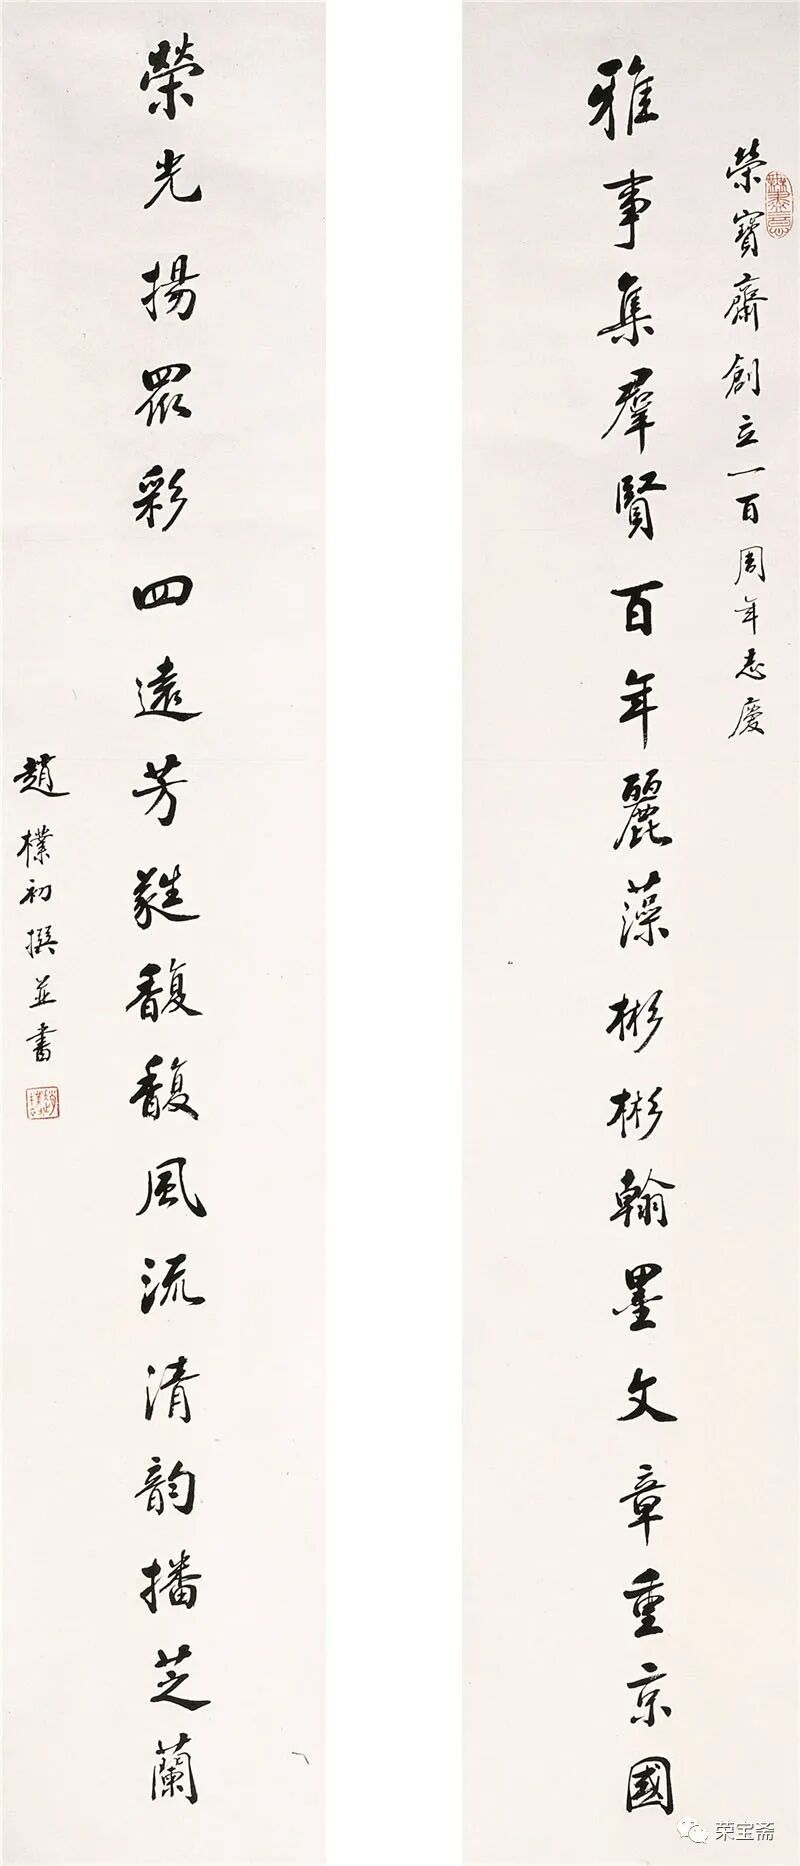 榮寶齋創立一百周年志慶
雅事集羣賢百年麗藻彬彬翰墨文章重京國
榮光揚眾彩四遠芳蕤馥馥風流清韵播芝蘭
趙樸初撰並書
荣宝斋